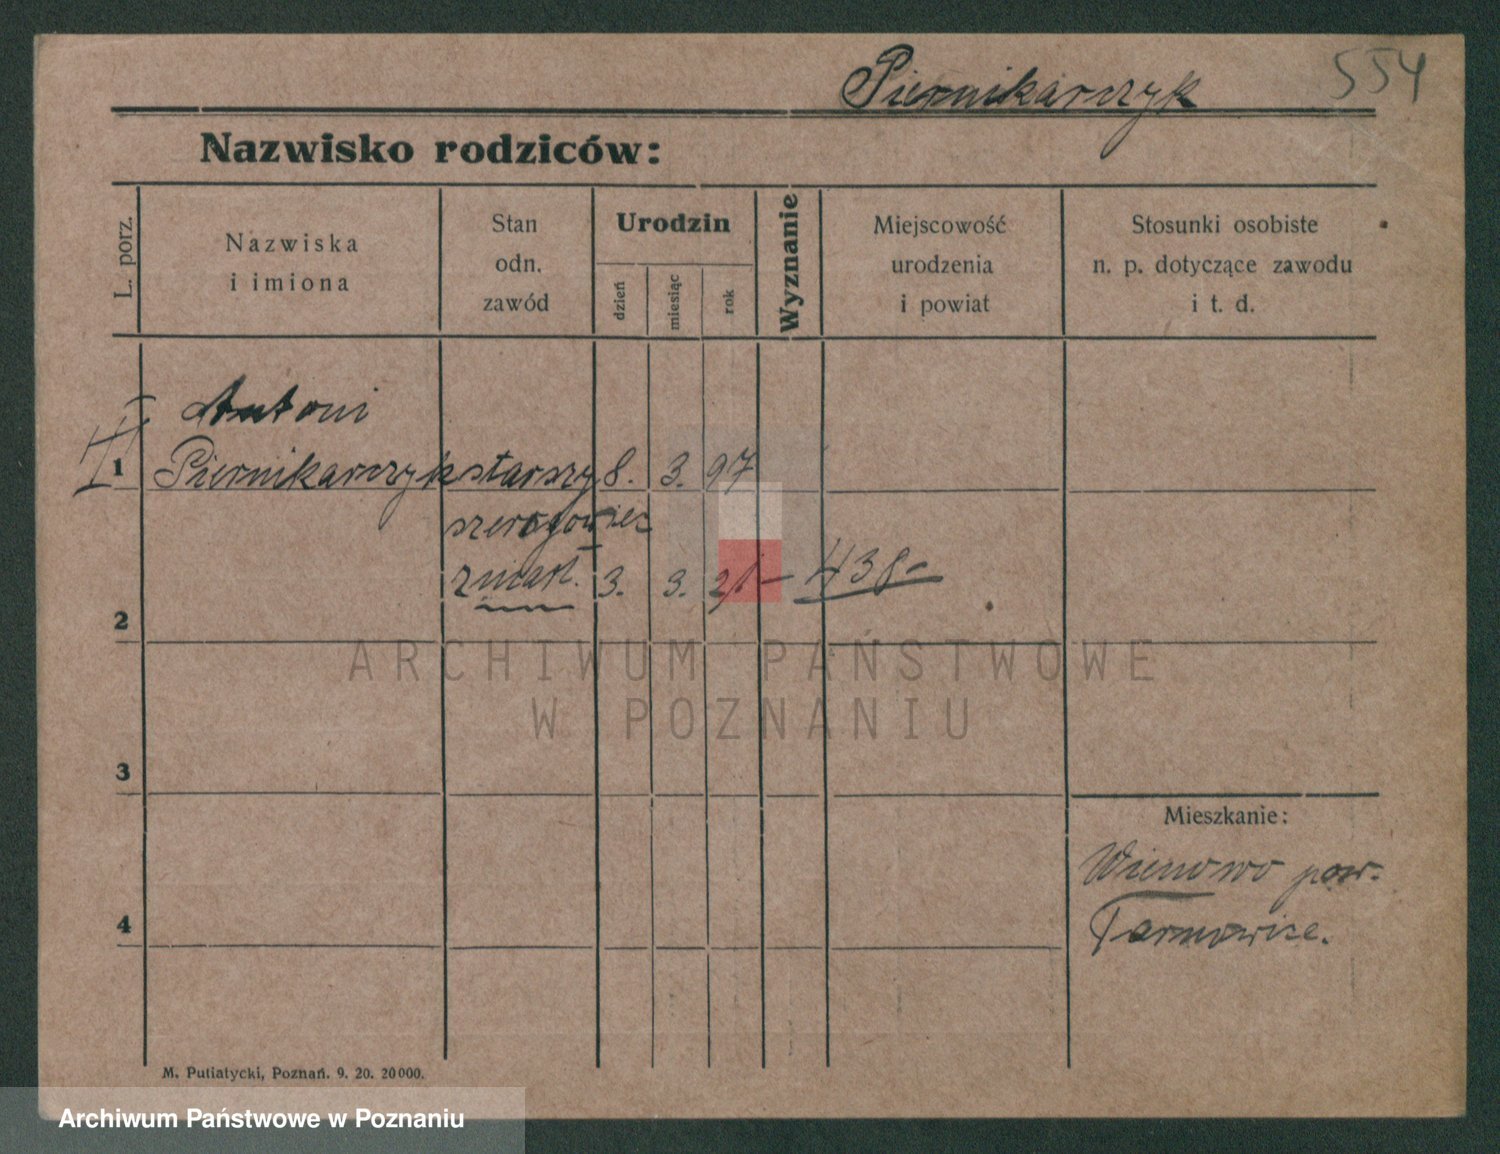 Piernikarczyk
554
Nazwisko rodziców:
L. porz.
Nazwiska
i imiona
Stan
odn.
zawód
Urodzin
dzień
miesiąc
rok
Wyznanie
Miejscowość
urodzenia
i powiat
Stosunki osobiste
n. p. dotyczące zawodu
i t. d.
Antoni
1 Piernikarczyk starszy 8. 3. 97
szeregowiec
zmarł. 3. 3. 21 – 438-
2
ARCHIWUM PAŃSTWOWE
W POZNANIU
3
Mieszkanie:
pow.
4
Tarnowice.
M. Putiatycki, Poznań. 9. 20. 20000.
Archiwum Państwowe w Poznaniu